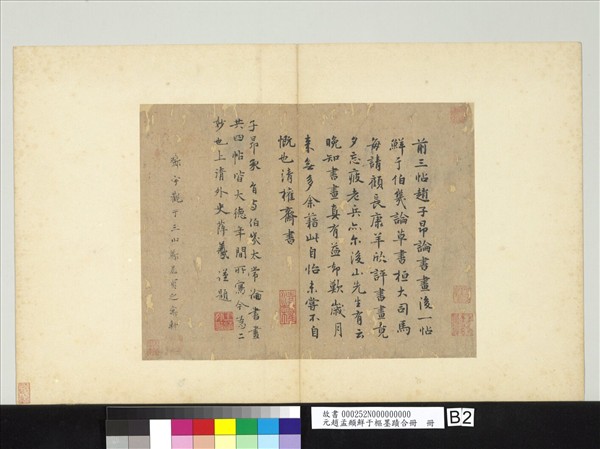 前三帖趙子昂論書畫後一帖
鮮于伯幾論草書桓大司馬
每請顧長康羊欣評書畫竟
夕忘疲老兵亦尔後山先生有云
晚知書畫真有益却歎歲月
來無多余藉此自怡亦當不自
慨也清權齋書
子昂承旨与伯幾太常論書畫
共四帖皆大德年間所寫今為二
妙也上清外史薛羲謹題
故書 000252N000000000
元趙孟頫鮮于樞墨蹟合冊 冊
B2